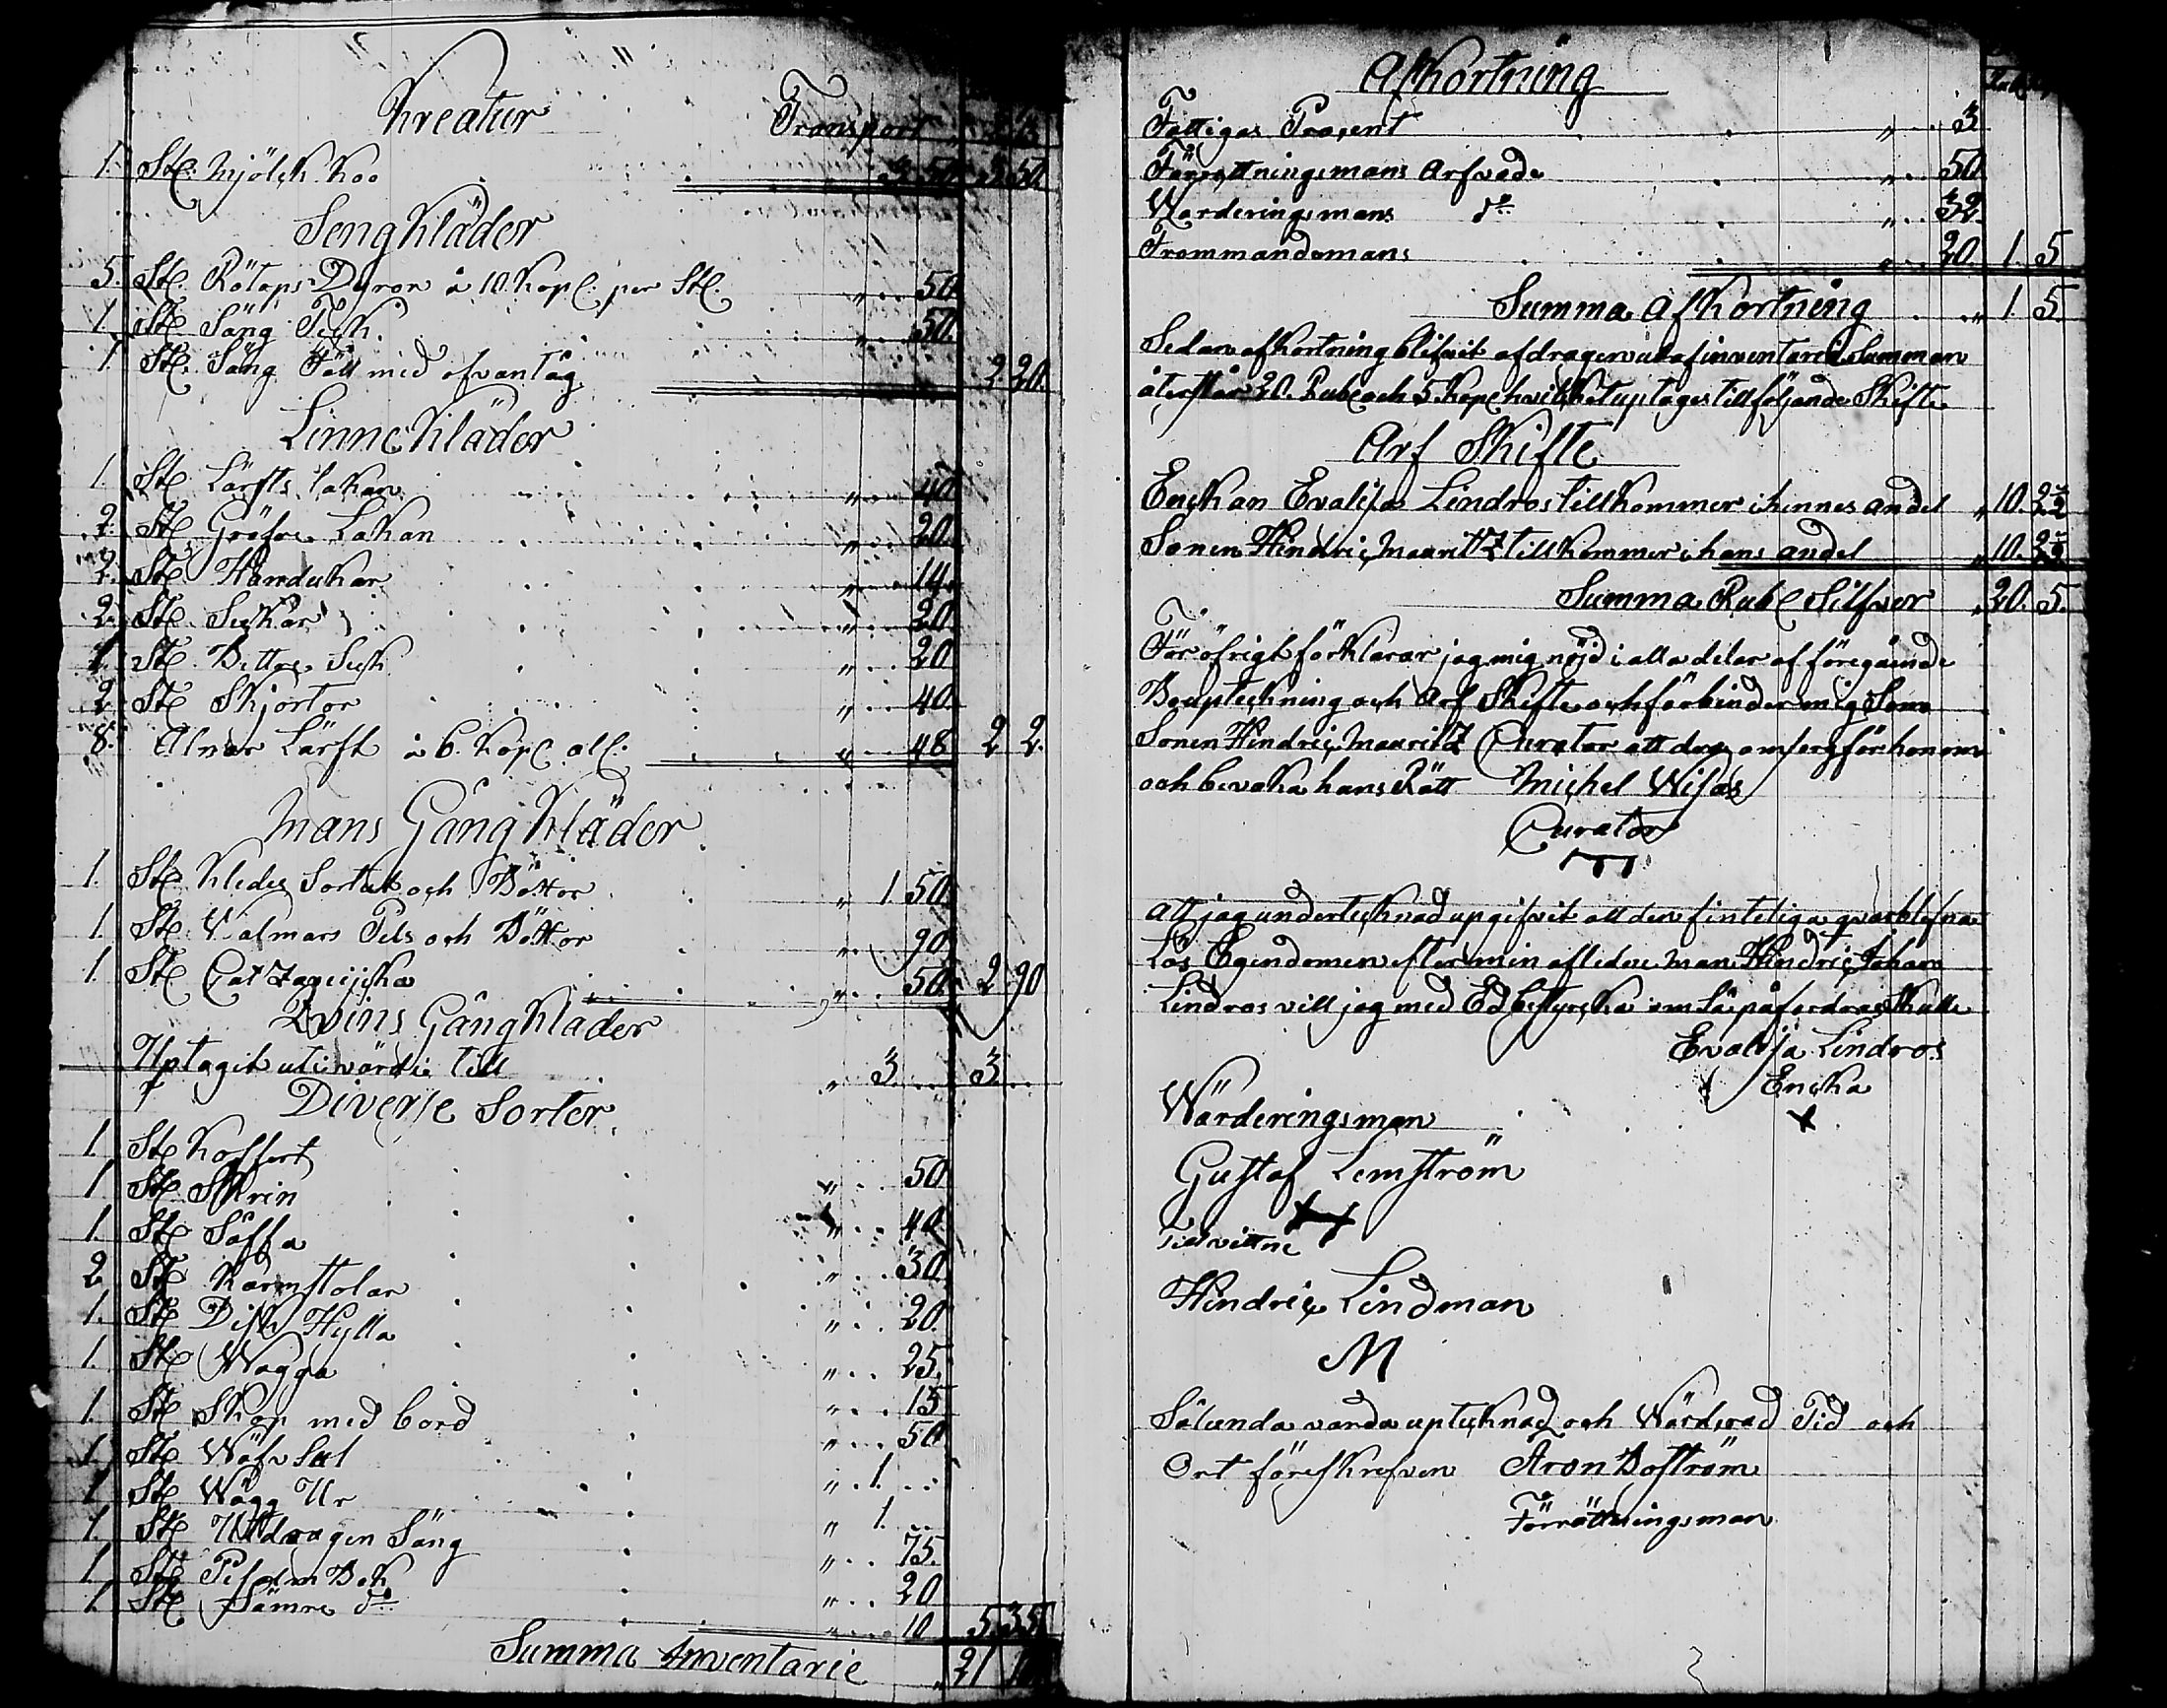 Kreatur Transport
1. St. Mjölk Koo 3 50 3 50
Sengkläder
5. St. Dynor å 10. Kop. per St. „ 50
1. St. Säng Täck „ 50.
1. St. Säng Fäll med ofvantåg 2 20.
Linnekläder
1. St. Lärfts Lakan „ 40
2. St. Gröfre Lakan „ 20.
2. St. Handukar „ 14
2. St. „ 20
1. St. „ 20
2. St. Skjortor „ 40.
8. Alnar Lärft å 6. Kop. al. „ 48 2 2.
Mans Gångkläder
1. St. Kledes Sortut och Böxor „ 1 50
1. St. Valmars Pels och Böxor „ 90
1. St. „ 50. 2 90
Qvins Gångkläder
Uptagit uti värde till „ 3. 3
Diverse Sorter
1. St. Koffert
1. St. Skrin „ 50
1. St. Såffa „ 40
2. St. Karmstolar „ 30
1. St. Disk Hylla „ 20.
1. St. Wagga „ 25.
1. St. Skåp med bord „ 15
1. St. Wäfv Stol „ 50
1 St. Wägg Ur „ 1.
1. St. Utdragen Säng „ 1.
1. St. Psalm Bok „ 75.
1. St. Sämre do „ 20
„ 10 5 35
Summa Inventarie 21 10
Afkortning
Fattigas Procent „ 3
Förrättningsmans Arfvode „ 50
Värderingsmans do „ 32
Frommandemans „ 20 1. 5
Summa Afkortning „ 1. 5.
Sedan afkortning blifvit afdragen utaf inventarie Summan
återstår 20. Rubel och 5. Kop. hvilket uptages till följande Skifte
Arf Skifte
Enckan Evalisa Lindros tillkommer i hennes andel „ 10. 2½
Sonen Hindric Mauritz tillkommer i hans andel „ 10. 2½
Summa Rubel Silfver „ 20. 5.
För öfrigt förklarar jag mig nöjd i alla delar af föregående
Bouptekning och Arf Skifte och förbinder mig Som
Sonen Hindric Mauritz Curator att draga omsorg för honom
och bevaka hans Rätt Michel Wifas
Curator
Att jag undertecknad upgifvit all den qvarblefna
Lös Egendomen efter min afledne man Hindric Johan
Lindros vill jag med Ed bestyrcka om Så påfordras Skulle
Evalisa Lindros
Encka
Wärderingsman
Gustaf Lemström
Till vittne
Hindric Lindman
M
Sålunda varda uptecknad och Wärderad Tid och
Ort föreskrefven Aron Boström
Förrättningsman